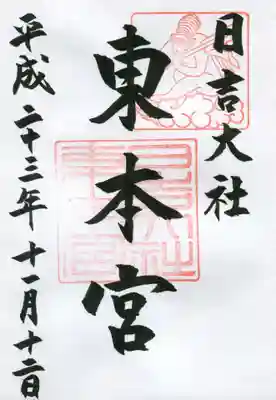 日吉大社
東本宮
平成二十三年十一月十二日